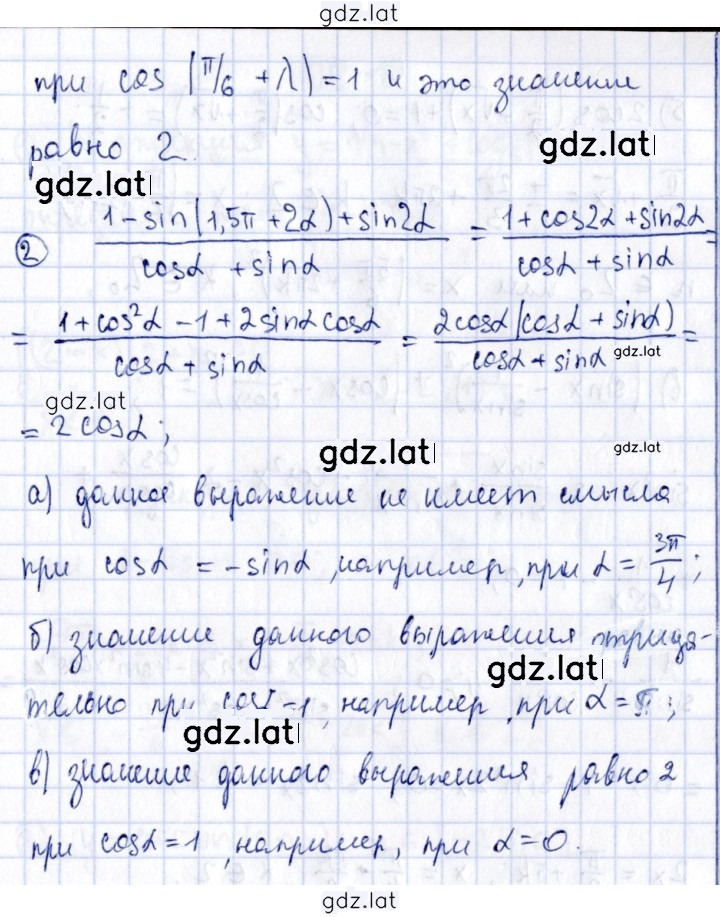 gdz.lat
при cos (π/6 + λ) = 1 и это значение
равно 2.
gdz.lat
gdz.lat
② (1 - sin(1,5π + 2α) + sin2α)/(cosα + sinα) = (1 + cos2α + sin2α)/(cosα + sinα) =
= (1 + cos²α - 1 + 2sinα cosα)/(cosα + sinα) = (2cosα(cosα + sinα))/(cosα + sinα) =
gdz.lat
gdz.lat
= 2cosα;
gdz.lat
gdz.lat
а) данное выражение не имеет смысла
при cosα = -sinα, например, при α = 3π/4;
б) значение данного выражения отрица-
gdz.lat
тельно при -1, например, при α = π;
gdz.lat
в) значение данного выражения равно 2
при cosα = 1, например, при α = 0.
gdz.lat